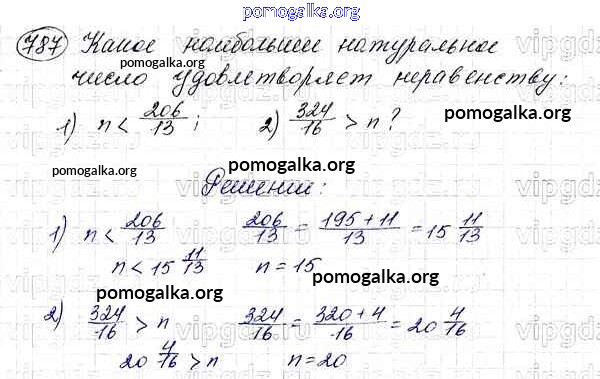 pomogalka.org
787 Какое наибольшее натуральное
pomogalka.org
число удовлетворяет неравенству:
1) n < 206/13 ; 2) 324/16 > n ? pomogalka.org
pomogalka.org
Решение:
1) n < 206/13 206/13 = 195+11/13 = 15 11/13
n < 15 11/13 n = 15 pomogalka.org
pomogalka.org
2) 324/16 > n 324/16 = 320+4/16 = 20 4/16
20 4/16 > n n = 20
pomogalka.org